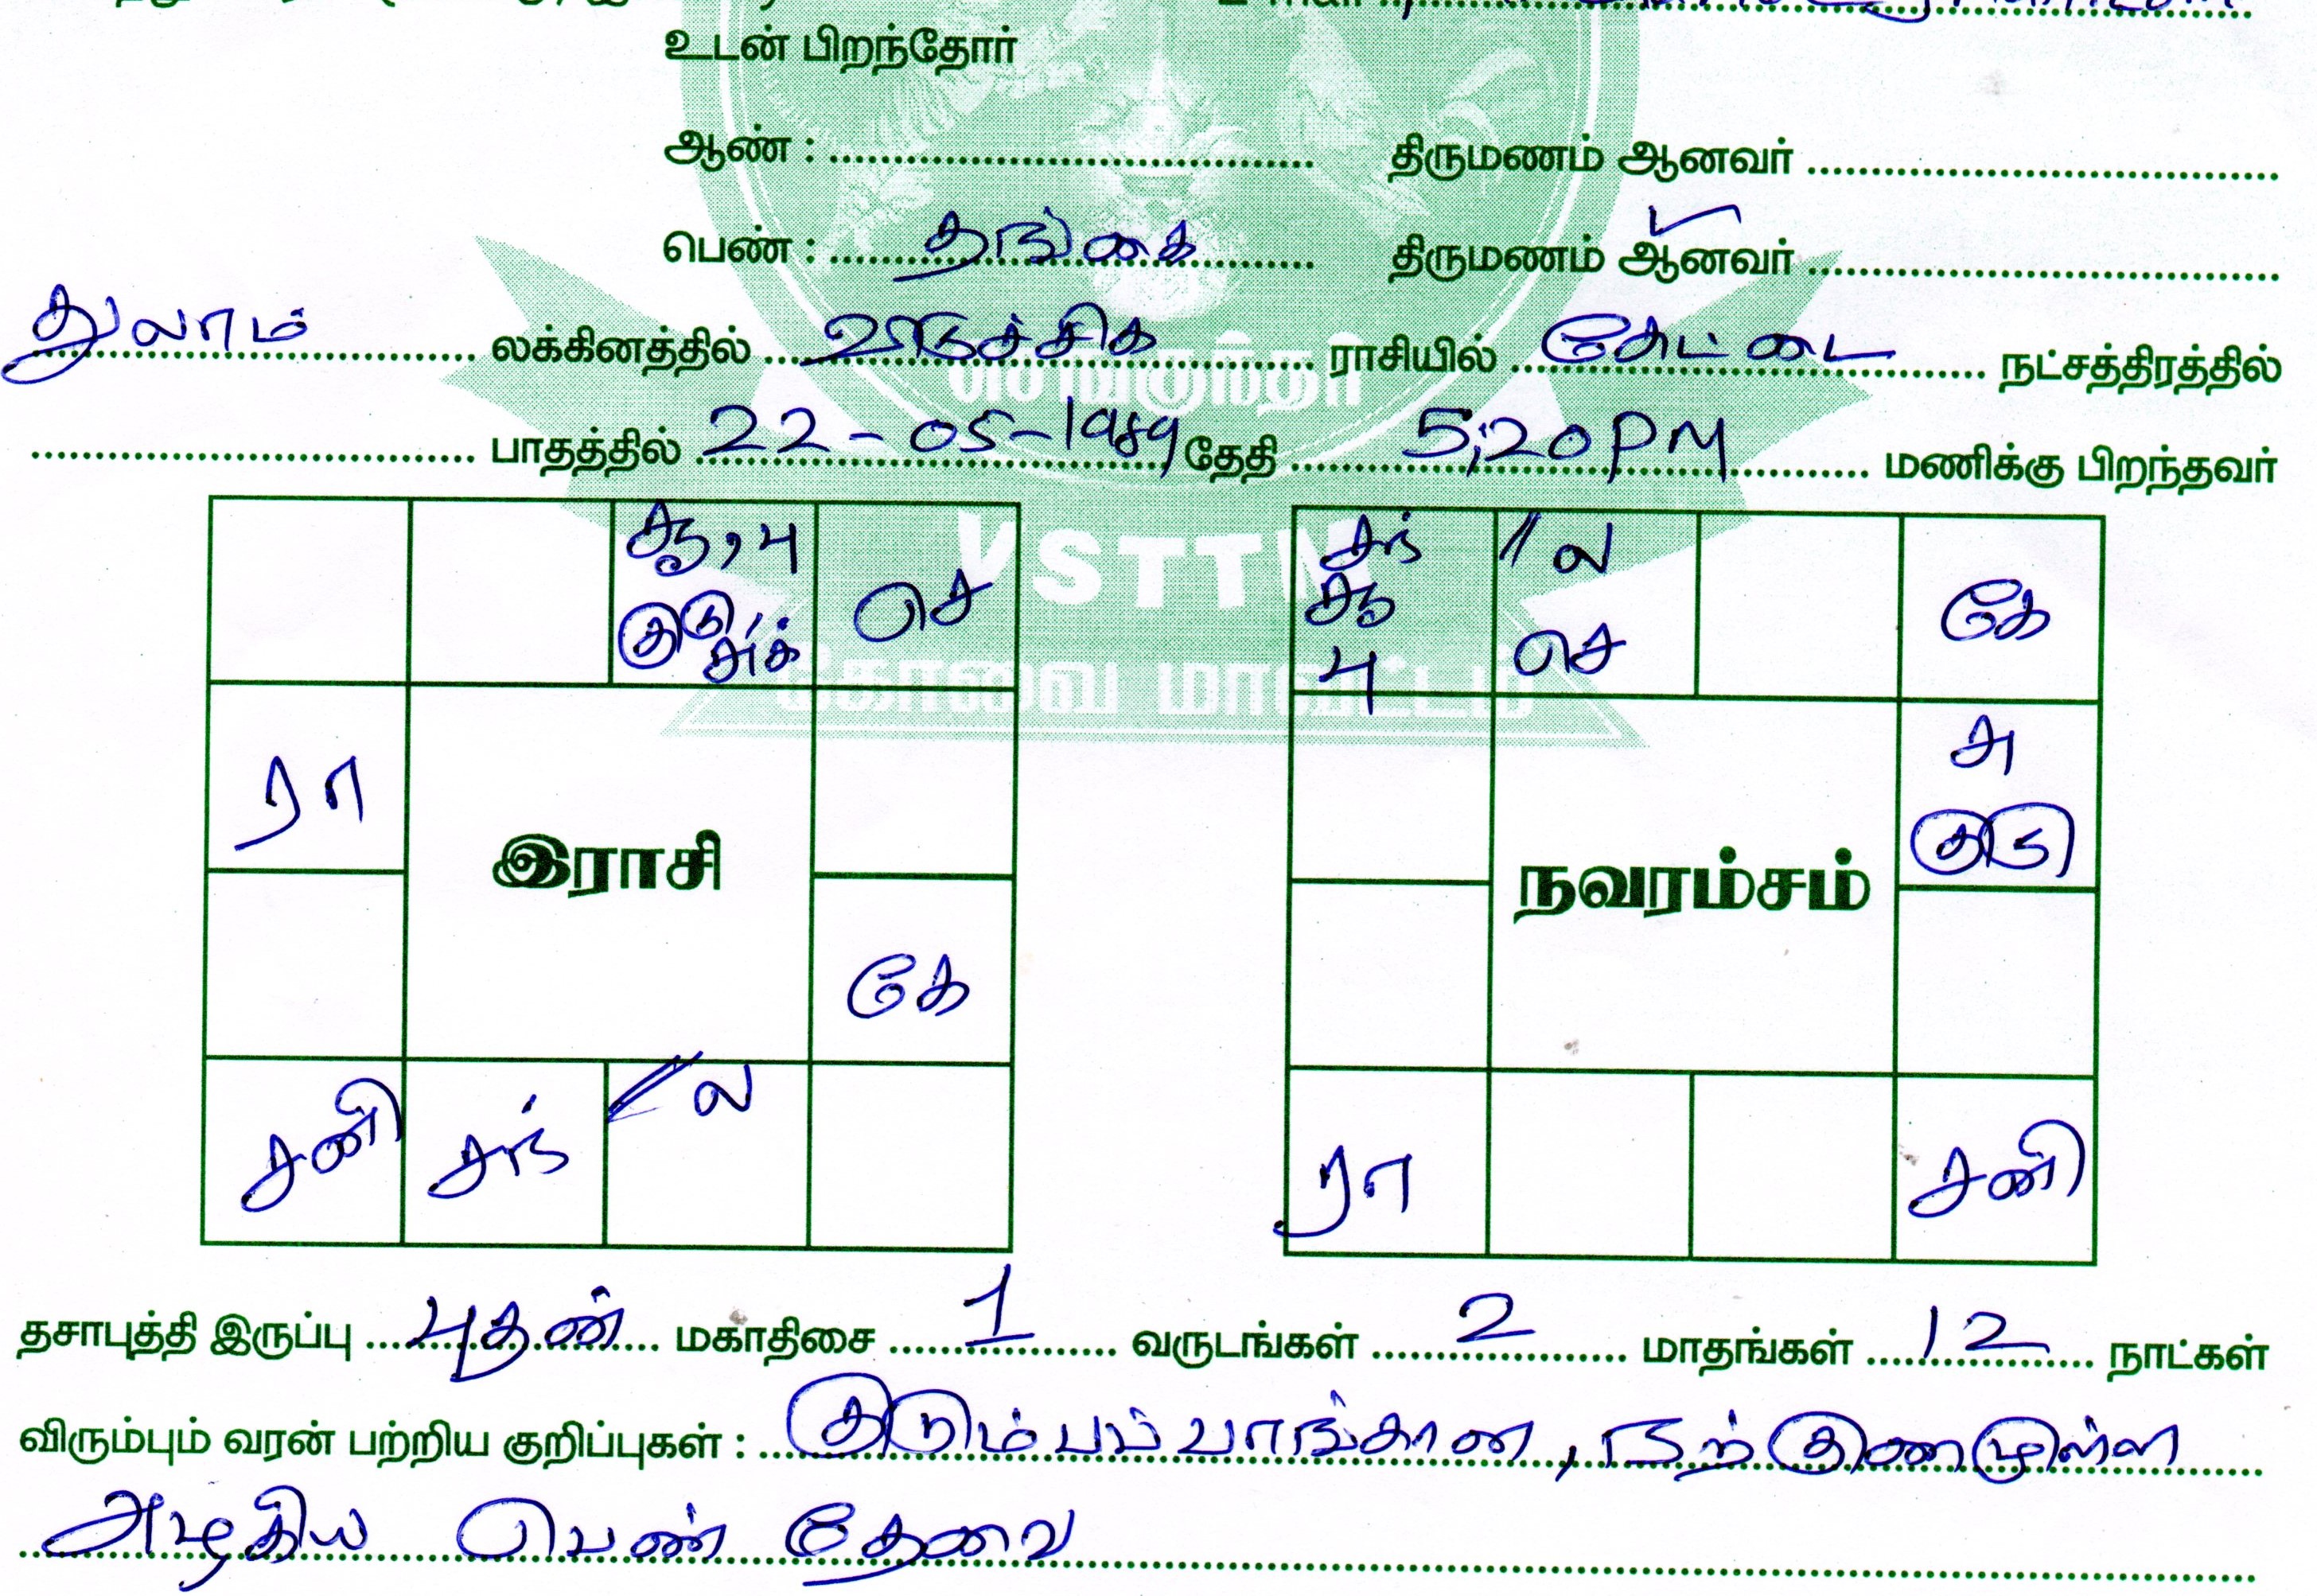 உடன் பிறந்தோர்
ஆண் : ........................ திருமணம் ஆனவர் ........................
பெண் : தங்கை திருமணம் ஆனவர் ✓ ........................
துலாம் லக்கினத்தில் விருச்சிக ராசியில் கேட்டை நட்சத்திரத்தில்
........................ பாதத்தில் 22-05-1989 தேதி 5.20 PM மணிக்கு பிறந்தவர்
செங்குந்தர்
VSTTM
கோவை மாவட்டம்
சூ, பு
குரு, சுக்
செ
ரா
இராசி
கே
சனி
சந்
ல
சந்
சூ
பு
ல
செ
கே
சு
குரு
நவரம்சம்
ரா
சனி
தசாபுத்தி இருப்பு புதன் மகாதிசை 1 வருடங்கள் 2 மாதங்கள் 12 நாட்கள்
விரும்பும் வரன் பற்றிய குறிப்புகள் : குடும்பப்பாங்கான, நற்குணமுள்ள
அழகிய பெண் தேவை